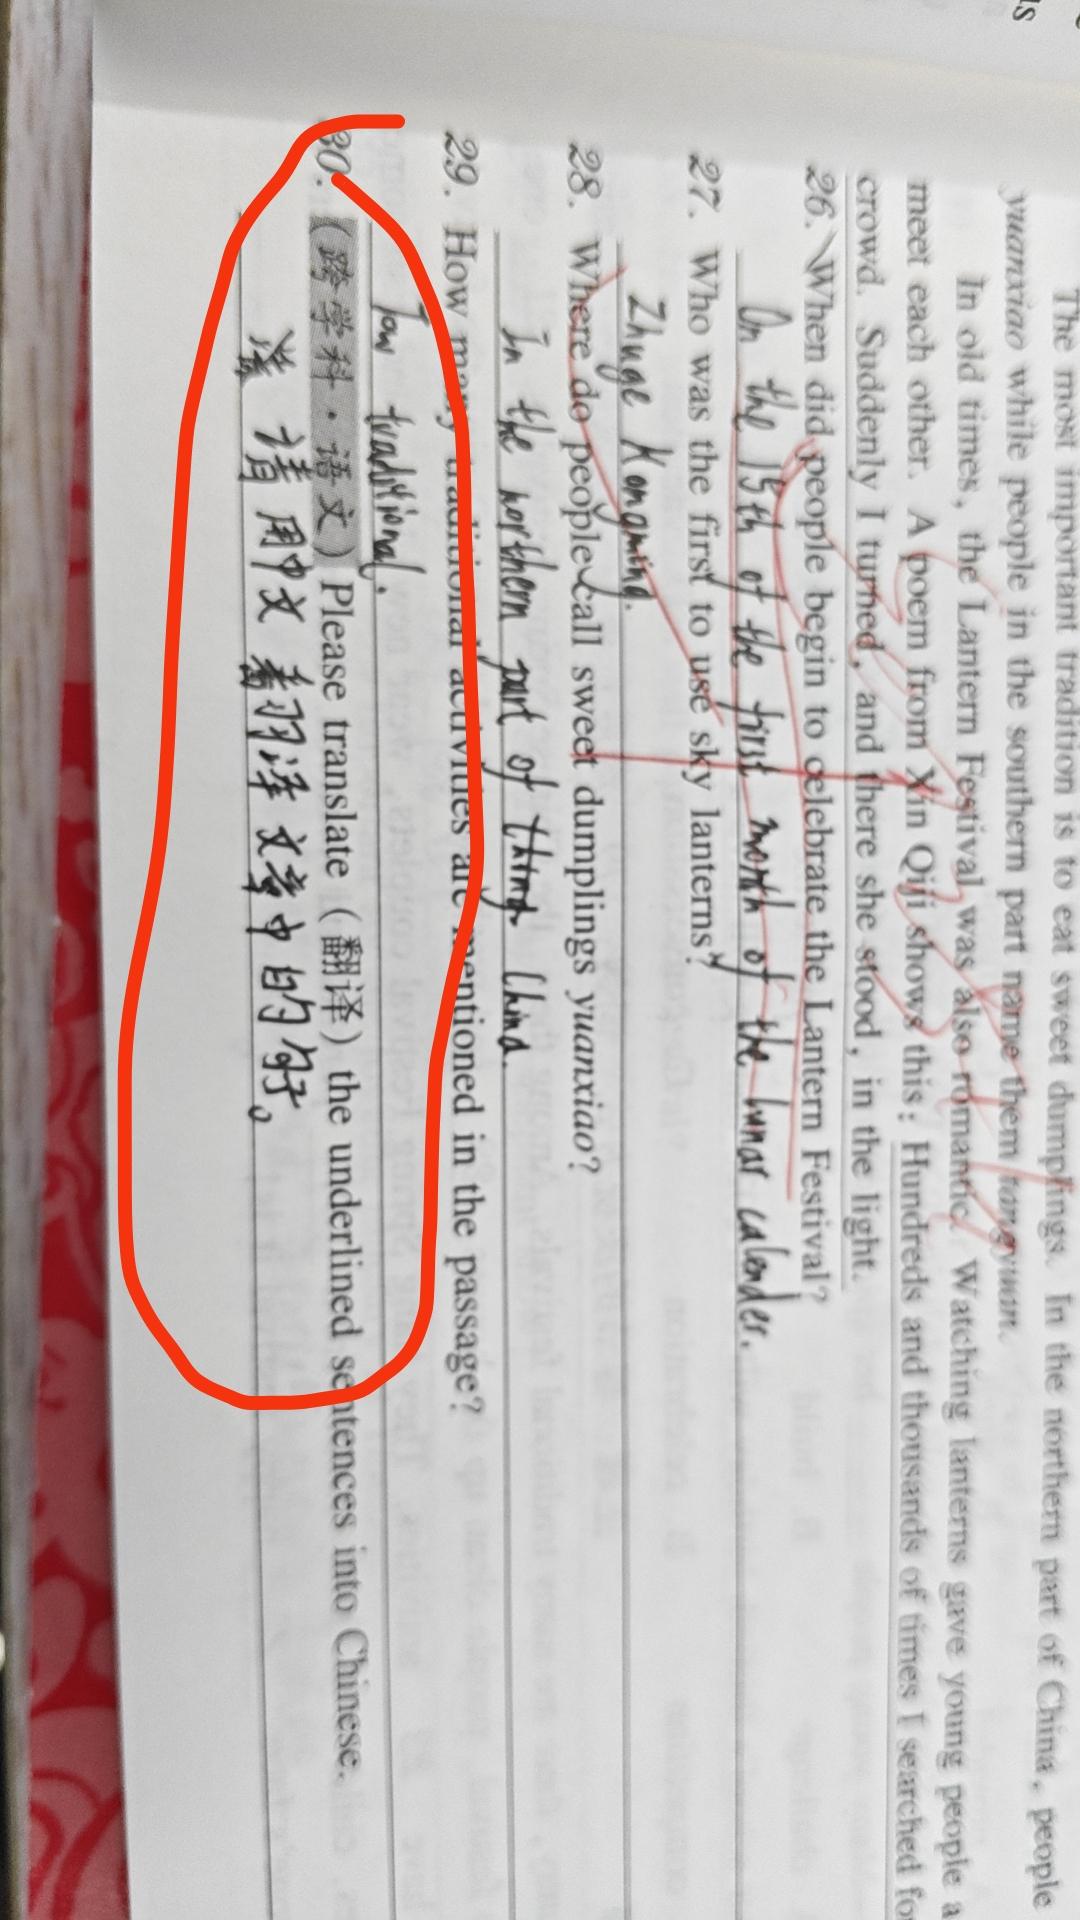 The most important tradition is to eat sweet dumplings. In the northern part of China, people
yuanxiao while people in the southern part name them tangyuan.
In old times, the Lantern Festival was also romantic. Watching lanterns gave young people a
meet each other. A poem from Xin Qiji shows this: Hundreds and thousands of times I searched for
crowd. Suddenly I turned, and there she stood, in the light.
26. When did people begin to celebrate the Lantern Festival?
On the 15th of the first month of the lunar calender.
27. Who was the first to use sky lanterns?
Zhuge Kongming.
28. Where do people call sweet dumplings yuanxiao?
In the northern part of China.
29. How many traditional activities are mentioned in the passage?
traditional.
30. (跨学科·语文) Please translate (翻译) the underlined sentences into Chinese.
答 请用中文翻译文章中的句子。